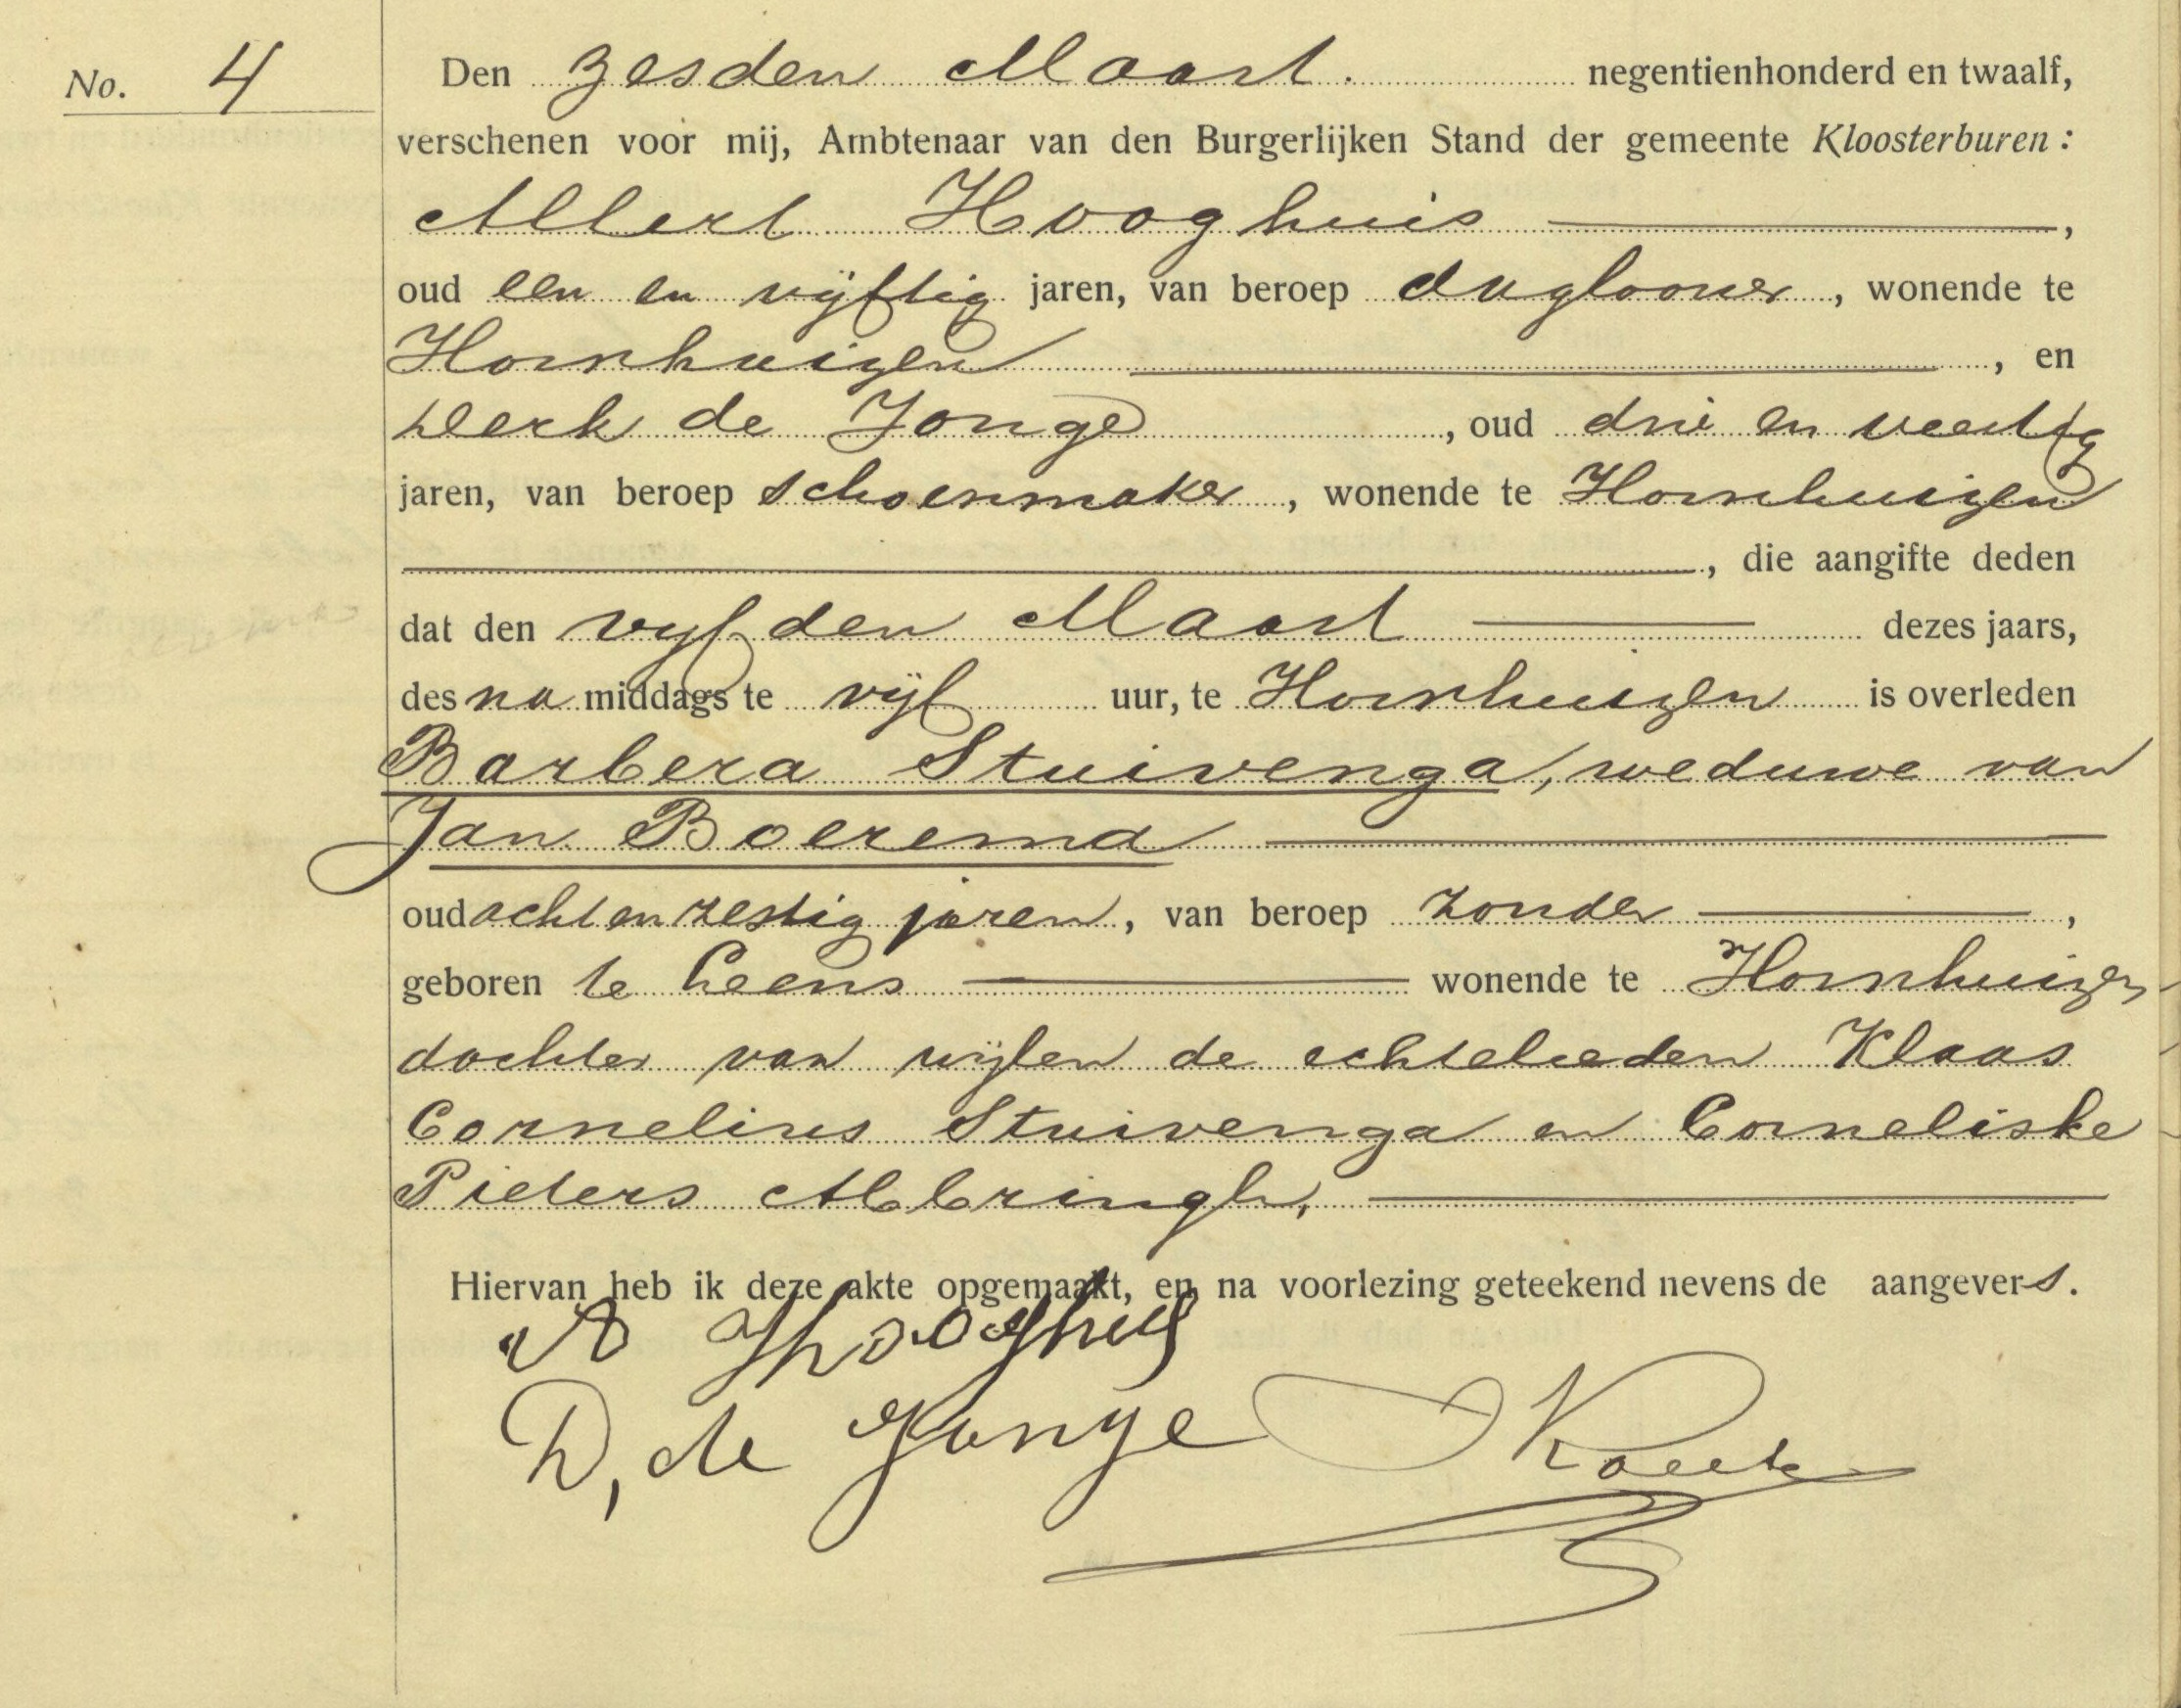 No. 4
Den zesden Maart. negentienhonderd en twaalf,
verschenen voor mij, Ambtenaar van den Burgerlijken Stand der gemeente Kloosterburen:
Allert Hooghuis,
oud een en vijftig jaren, van beroep daglooner, wonende te
Hornhuizen, en
Derk de Jonge, oud drie en veertig
jaren, van beroep schoenmaker, wonende te Hornhuizen
, die aangifte deden
dat den vijfden Maart dezes jaars,
des na middags te vijf uur, te Hornhuizen is overleden
Barbera Stuivenga, weduwe van
Jan Boerema
oud acht en zestig jaren, van beroep zonder,
geboren te Leens wonende te Hornhuizen,
dochter van wijlen de echtelieden Klaas
Cornelius Stuivenga en Corneliske
Pieters Abbringh,
Hiervan heb ik deze akte opgemaakt, en na voorlezing geteekend nevens de aangevers.
A Hooghuis
D, de Jonge